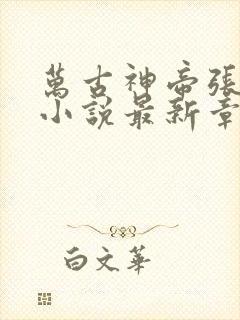 萬古神帝張
小說最新章
白文華